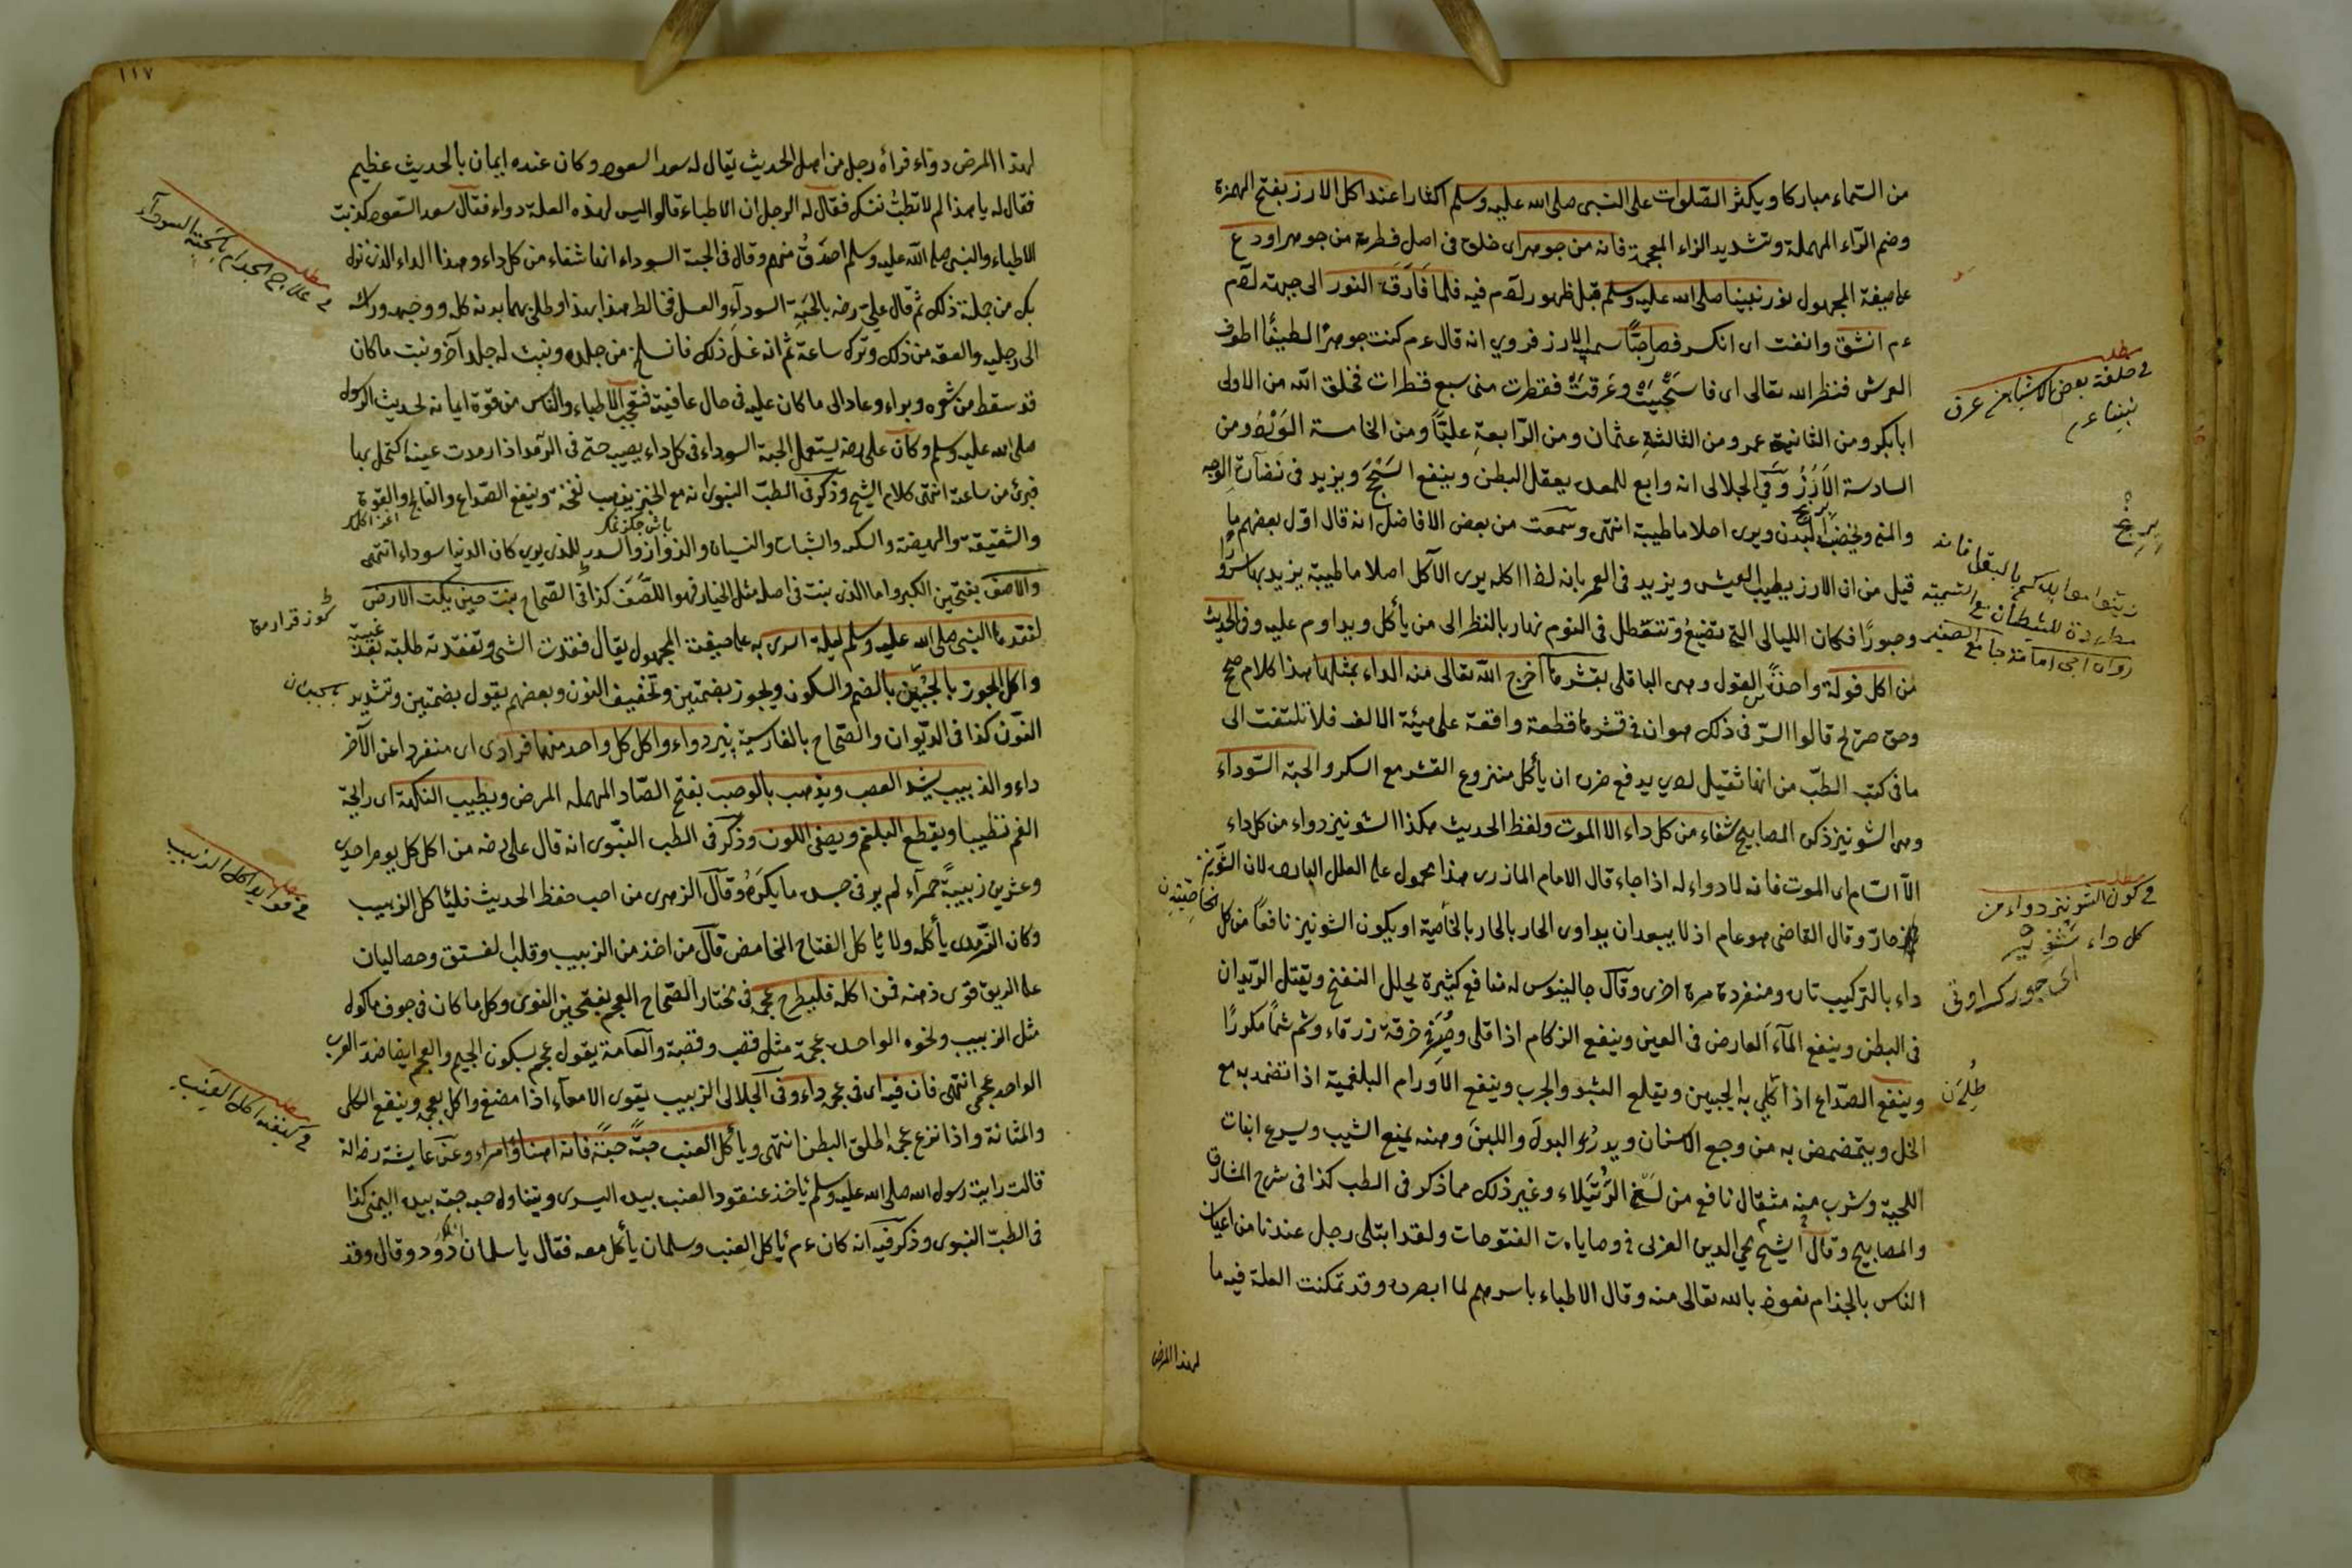 من السّماء مباركا ويكثر الصّلوات على النبى صلى الله عليه وسلم اكثارا عند اكل الارز بفتح الهمزة
وضم الرّاء المهملة وتشديد الزاء المعجمة فانه من جوهر اى خلق فى اصل فطرته من جوهر اودع
على صيغة المجهول نور نبينا صلى الله عليه وسلم قبل ظهور لآدم فيه فلما فَارَقَه النور الى جبهة لآدم
ءم انشق وانفت اى انكسر فصار حبًّا سمى بالارز فروي انه قال ءم كنت جوهرًا لطيفًا اطوف
العرش فنظر الله تعالى اى فاستحييته وعَرقتُ فقطرت منى سبع قطرات فخلق الله من الاولى
ابابكر ومن الثانية عمر ومن الثالثةِ عثمان ومن الرّابعةِ عليًّا ومن الخامسة الوَرْدُ ومن
السادسة الاَرُزُ وَفي الجلالى انه وابع للمعدة يعقل البطن وينفع السَحَجَ ويزيد فى نضارة الوجه
والمنى ويخصّب البدن ويرى احلاما طيبة انتهى وسمعت من بعض الافاضل انه قال اوّل بعضهم ما
قيل من ان الارز يطيب العيش ويزيد فى العمر بانه لذا اكله يرى الآكل احلاما طيبة يزيد بها سرّوا
وحبورًا فكان الليالى التى تضيعُ وتتعطل فى النوم نهار بالنظر الى من يأكل ويداوم عليه وفى الحديث
من اكل فولة واحدةً الفول وهى الباقلى بقشرها اخرج الله تعالى منه الداء بمثلها هذا كلام صحيح
وحق صريح قالوا السّر فى ذلك هو ان فى قشرها قطعة واقعة على هيئة الالف فلا تلتفت الى
ما فى كتب الطبّ من انها ثقيل لدى يدفع ضرره ان يأكل منزوع القشر مع السكر والحبة السّوداء
وهى الشونيز ذكره المصابيح شفاء من كل داء الا الموت ولفظ الحديث هكذا الشونيز دواء من كل داء
الآ السّام اى الموت فانه لا دواء له اذا جاء قال الامام المازرى هذا محمول على العلل الباردة لان الشونيز
حارّ وقال القاضى هو عام اذ لا يبعد ان يداوى الحار بالحار بالخاصّية او يكون الشونيز نافعًا من كل
داء بالتركيب تارة ومنفردة مرة اخرى وقال جالينوس له منافع كثيرة يحلل النفخ ويقتل الديدان
فى البطن وينفع المآء العارض فى العين وينفع الزكام اذا قلى وصُرَّ فى خرقة زرقاء وشم شمًا مكررًا
وينفع الصّداع اذا طُلى به الجبين ويقلع البثور والجرب وينفع الاورام البلغمية اذا تضمد به مع
الخل ويتمضمض به من وجع الاسنان ويدرُ البول واللبنَ ودهنه يمنع الشيب ويسرع انبات
اللحية وشرب منه مثقال نافع من لسع الرُّتَيلاء وغير ذلك مما ذكر فى الطب كذا فى شرح المشارق
والمصابيح وقال الشيخ محي الدين العربى فى وصاياه ت الفتوحات ولقد ابتلى رجل عندنا من اعيان
الناس بالجذام نعوذ بالله تعالى منه وقال الاطباء باسرهم لما ابصروه وقد تمكنت العلة فيه ما
لهذا المرض
مطلب
فى خلقة بعض الاشياء من عرق
نبينا ءم
زينوا موايدكم بالبقل فانه
مطردة للشيطان مع التسمية
رواه ابى امامة جامع الصغير
مطلب
فى كون الشونيز دواء من
كل داء شُونيز
اى جورك اوتى
١١٧
لهذا المرض دواء فرأه رجل من اهل الحديث يقال له سعد السعود وكان عنده ايمان بالحديث عظيم
فقال له يا هذا لم لا تطبُّ نفسك فقال له الرجل ان الاطباء قالوا ليس لهذه العلة دواء فقال سعد السّعود كذبت
الاطباء والنبى صلى الله عليه وسلم اصدَقُ منهم وقال فى الحبة السوداء انها شفاء من كل داء وهذا الداء الذى نزل
بك من جملة ذلك ثم قال علىّ رضه بالحَبّةِ السودآءِ والعسل فخالط هذا بهذا وطلى بهما بدنه كله ووجهه ورأسه
الى رجليه والعقه من ذلك وتركه ساعة ثم انه غسل ذلك فانسلخ من جلده ونبت له جلد آخر ونبت ما كان
قد سقط من شعره وبراء وعاد الى ما كان عليه فى حال عافيته فتعجب الاطباء والناس من قوّة ايمانه لحديث الرسول
صلى الله عليه وسلم وكان على رضه يستعمل الحبة السوداء فى كل داء يصيبه حتى فى الرّمد اذا رمدت عينه اكتحل بها
فبرئ من ساعته انتهى كلام الشيخ وذكر فى الطبّ النبوى انه مع الخبز يذهب نفخته وينفع الصّداع والفالج واللقوة
والشقيقة والهيضة والسكر والسُّبات والنسيان والدوار والسدر للذى يرى كان الدنيا سوداء انتهى
والاصَف بفتحتين الكبر واما الذى ينبت فى اصله مثل الخيار فهو اللصَف كذا فى الصّحاح ينبت حين بكت الارض
لفقدها النبى صلى الله عليه وسلم ليلة اسرى به على صيغة المجهول يقال فقدت الشى وتفقدته طلبته بعد غيبته
واكل الجوز بالجُبُنِ بالضم والسكون ويجوز بضمتين وتخفيف النون وبعضهم يقول بضمتين وتشديد
النّون كذا فى الدّيوان والصّحاح بالفارسية پنير دواء واكل كل واحد منهما فرادى اى منفردا عن الآخر
داء والزبيب يشد العصب ويذهب بالوصب بفتح الصّاد المهمله المرض ويطيب النكهة اى رائحة
الفم تطييبا ويقطع البلغم ويصفى اللون وذكر فى الطب النبّوى انه قال على رضه من اكل كل يوم احدى
وعشرين زبيبةً حمرآء لم ير فى جسده ما يكرَهُ وقال الزهرى من احب حفظ الحديث فليأكل الزبيب
وكان الزّهرى يأكله ولا يأكل التفاح الحامض قال من اخذ من الزبيب وقلب الفستق وحصا لبان
على الريق قوى ذهنه فمن اكله فليطرح عجمه فى مختار الصّحاح العجم بفتحتين النوى وكل ما كان فى جوف ماكول
مثل الزبيب ونحوه الواحدة عجمة مثل قصب وقصبة والعامة يقول عجم بسكون الجيم والعجم ايضا ضدّ العرب
الواحد عجمى انتهى فان فيه اى فى عجمه داء وفى الجلالى الزبيب يقوى الامعآء اذا مضغ واكل بعجمه وينفع الكلى
والمثانة واذا نزع عجمه اطلق البطن انتهى ويأكل العنب حبّةً حبّةً فانه اهنأ وامراء وعن عايشة رضه انه
قالت رايت رسول الله صلى الله عليه وسلم يأخذ عنقود العنب بيده اليسرى ويتناوله حبه حبه بيده اليمنى كذا
فى الطبّ النبوى وذكر فيه انه كان ءم يأكل العنب وسلمان يأكل معه فقال يا سلمان دَو دَو وقال وقد
مطلب
فى علاج الجذام بالحَبّة السودآء
مطلب
فى فوايد اكل الزبيب
مطلب
فى كيفية اكل العِنَب